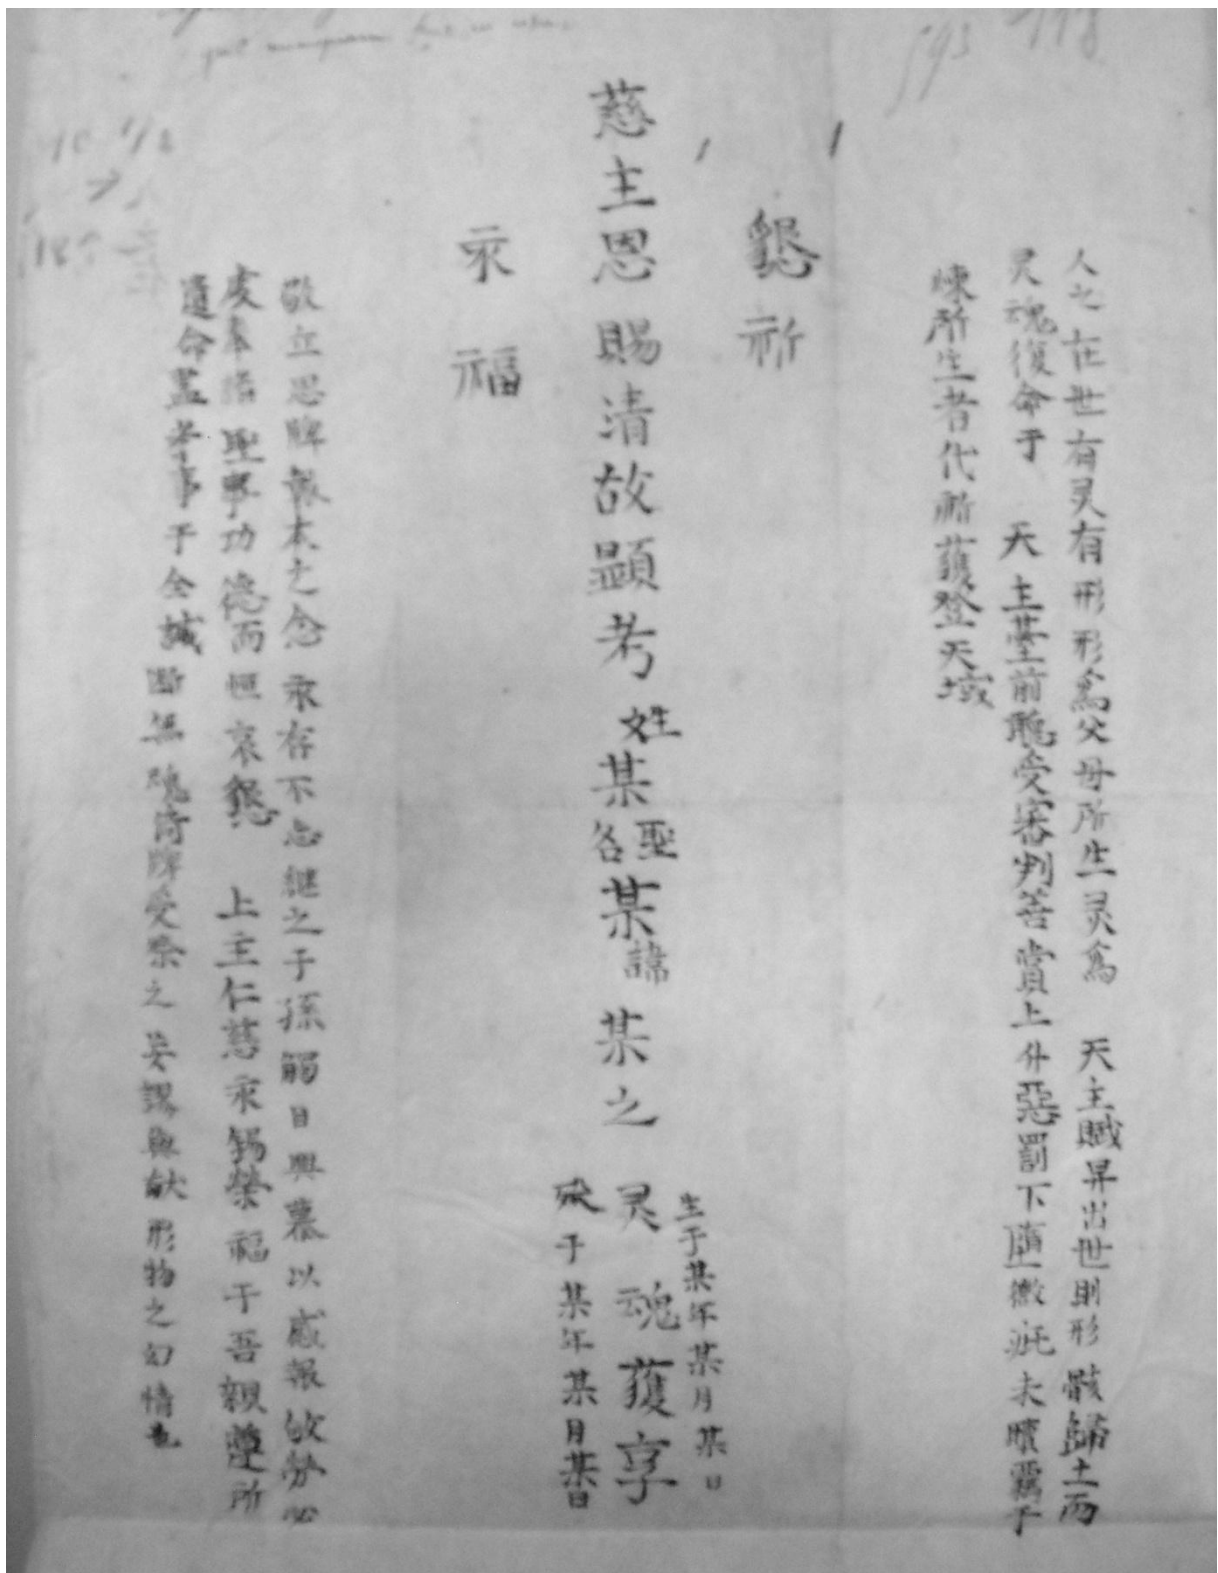 人之在世有灵有形形為父母所生灵為　天主賦畀出世則形骸歸土而
灵魂復命于　天主臺前聽受審判善賞上升惡罰下墮微疵未曠霧于
煉所生者代祈獲登天域
懇祈
慈主恩賜清故顯考姓某聖名某諱某之灵魂獲享
生于某年某月某日
歿于某年某月某日
永福
敬立思牌報本之念永存不忘継之子孫觸目興慕以感報劬勞
虔奉諸聖事功德而恒哀懇　上主仁慈永錫榮福于吾親遵所
遺命盡孝事于全誠斷無魂倚牌受祭之妄謬與献形物之幻情也